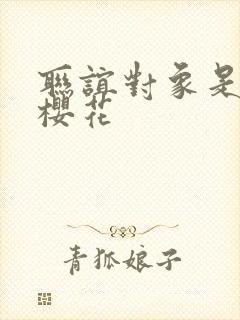 聯誼對象是
櫻花
青狐娘子